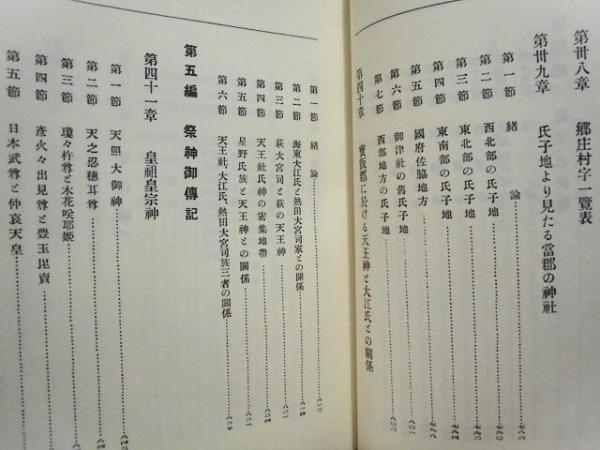 第卅八章 鄉庄村字一覽表
第卅九章 氏子地より見たる當郡の神社
第一節 緒論
第二節 西北部の氏子地
第三節 東北部の氏子地
第四節 東南部の氏子地
第五節 國府佐脇地方
第六節 御津社の舊氏子地
第七節 西部地方の氏子地
第四十章 寳飯郡に於ける天王神と大江氏との關係
第一節 緒論
第二節 海東大江氏と熱田大宮司家との關係
第三節 萩大宮司と萩の天王神
第四節 天王社氏神の密集地帶
第五節 星野氏族と天王神との關係
第六節 天王社、大江氏、熱田大宮司族三者の關係
第五編 祭神御傳記
第四十一章 皇祖皇宗神
第一節 天照大御神
第二節 天之忍穗耳尊
第三節 瓊々杵尊と木花咲耶姬
第四節 彥火々出見尊と豊玉毘賣
第五節 日本武尊と仲哀天皇